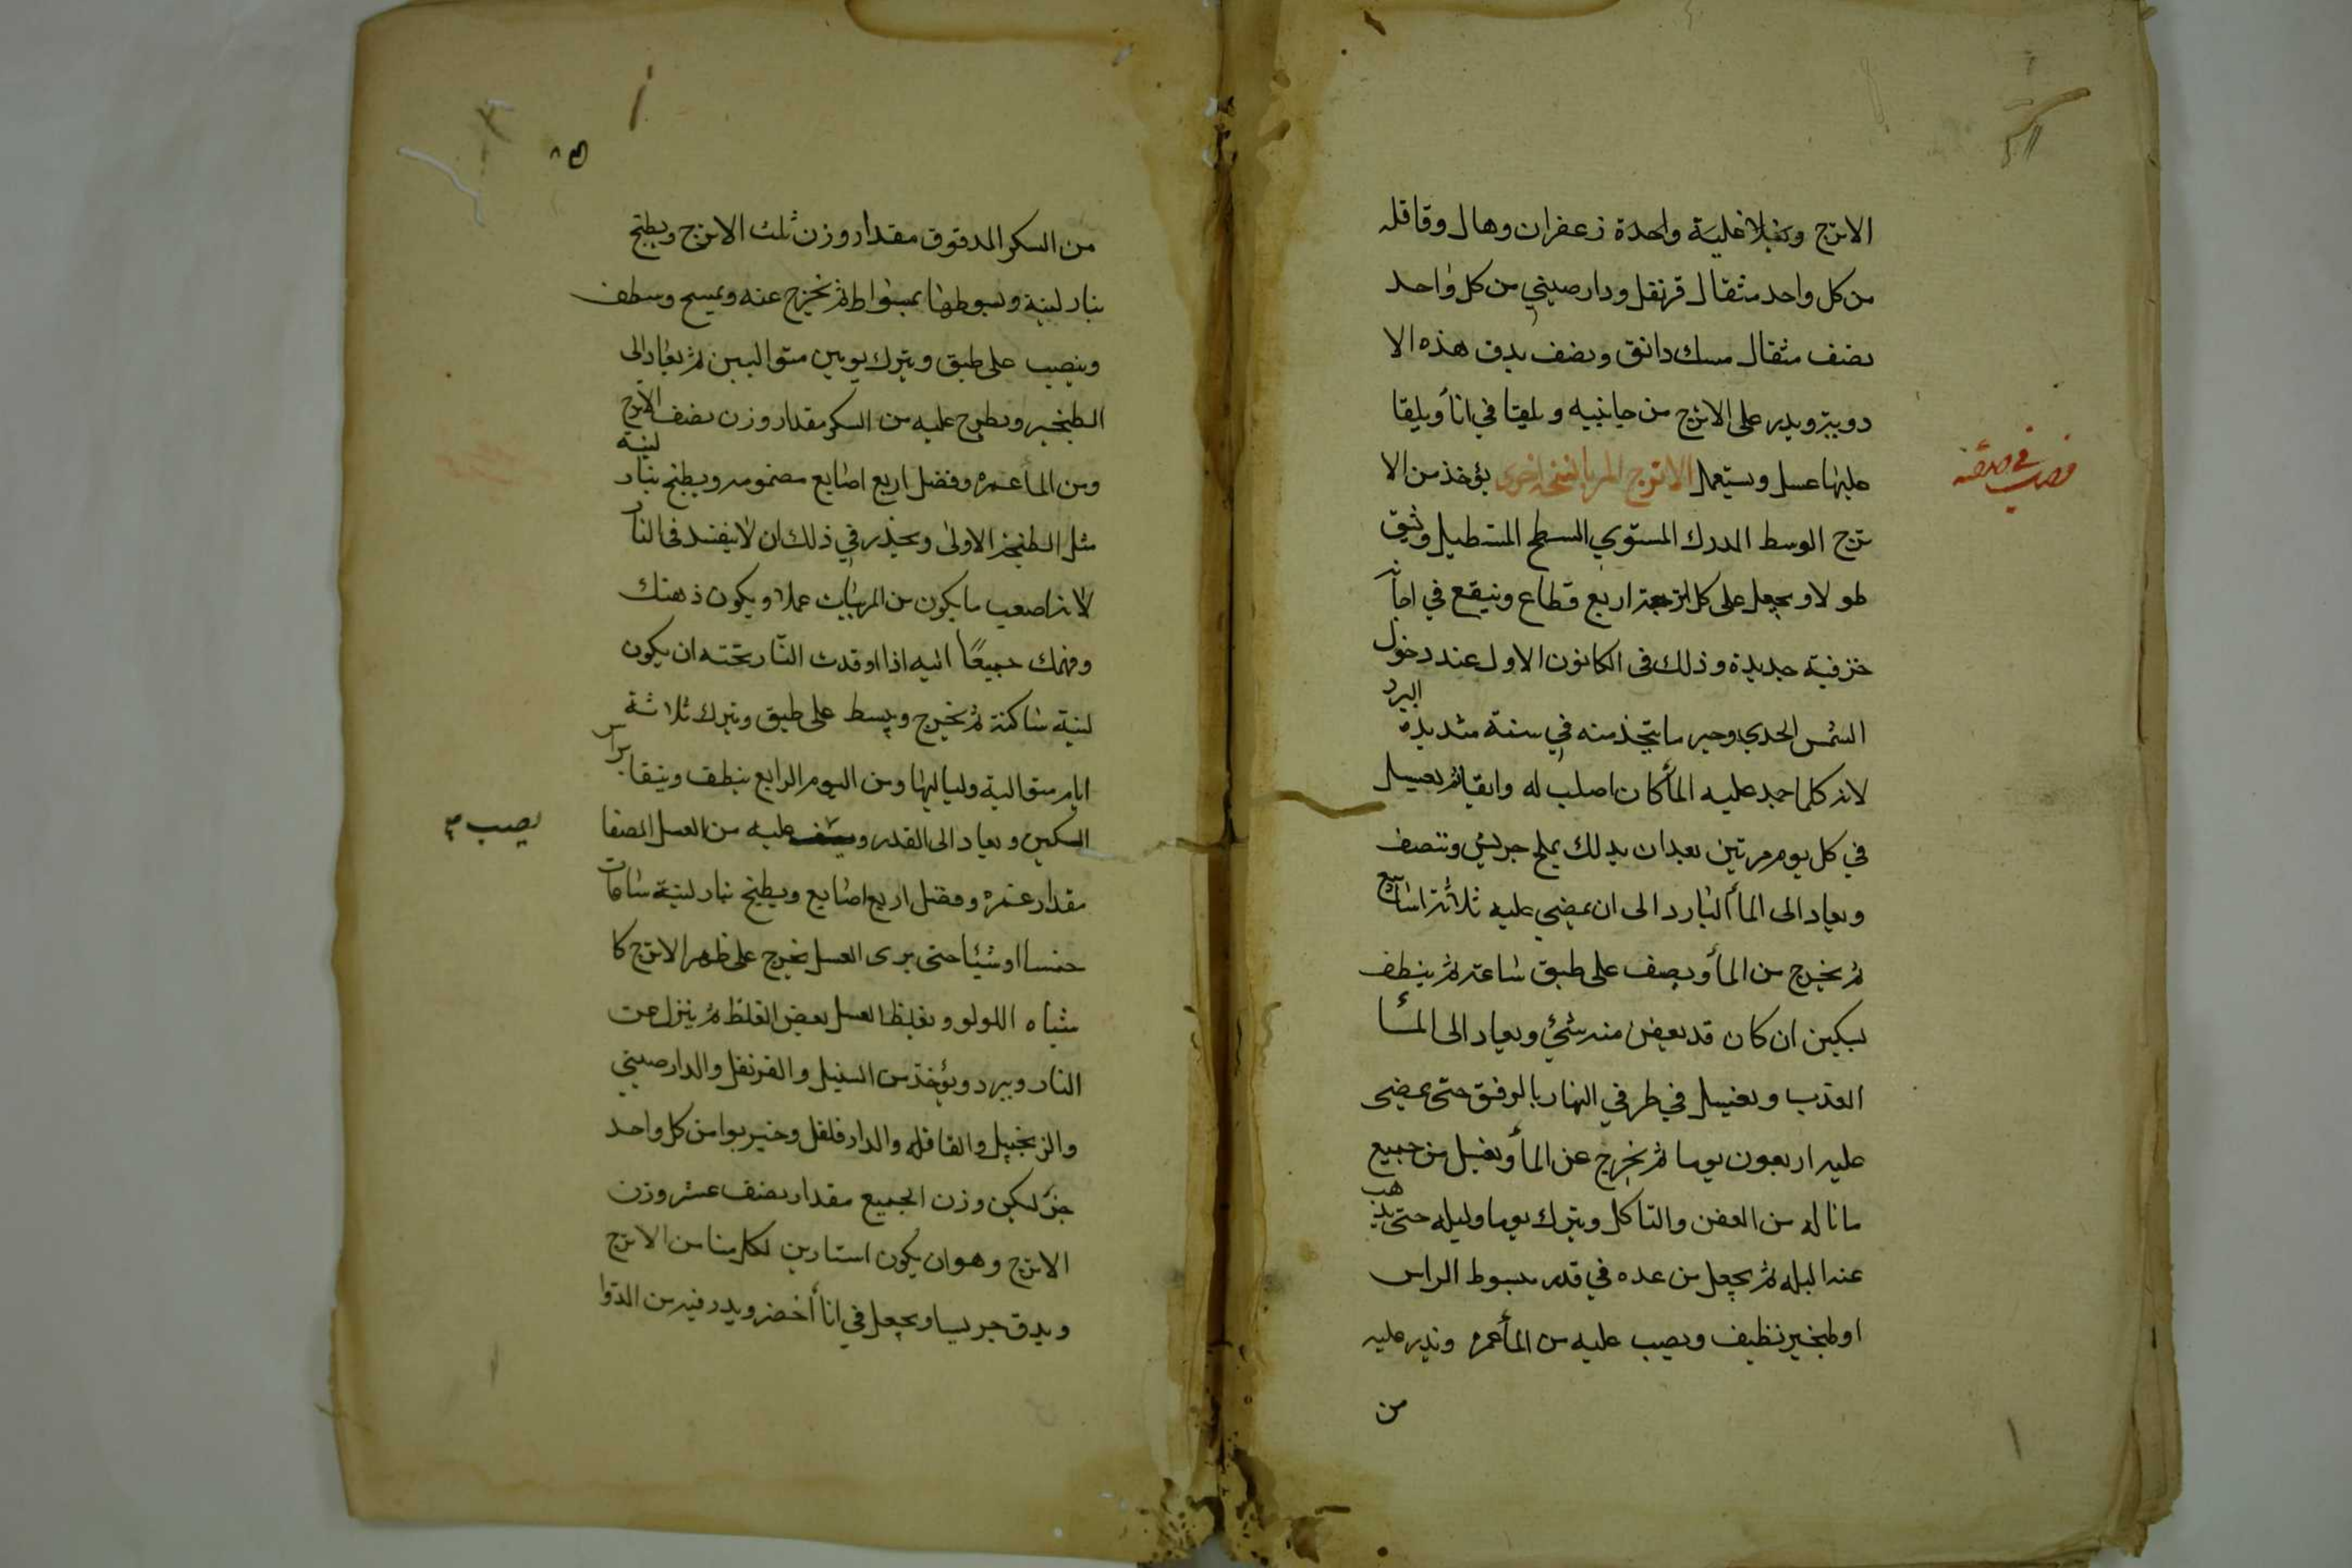 الاترج ويغلا غلية واحدة زعفران وهال وقاقله
من كل واحد مثقال قرنفل ودارصيني من كل واحد
نصف مثقال مسك دانق ونصف يدق هذه الا
دوية ويدر على الاترج من جانبيه ويلقا في اناأ ويلقا
عليها عسل ويستعمل الاترج المربا نسخة اخرى يؤخذ من الا
ترج الوسط المدرك المستوي السطح المستطيل ويشق
طولا ويجعل على كل اترجة اربع قطاع وينقع في اجانه
خزفية جديدة وذلك في الكانون الاول عند دخول
الشمس الجدي وخير ما يتخذ منه في سنة شديدة البرد
لانه كلما جمد عليه الماأ كان اصلب له وابقا ثم يغسل
في كل يوم مرتين بعد ان يدلك بملح جريش وتنصف
ويعاد الى الماأ البارد الى ان يمضي عليه ثلاثة اسابيع
ثم يخرج من الماأ ويصف على طبق ساعة ثم ينظف
بسكين ان كان قد بعض منه شئ ويعاد الى الماأ
العذب ويغسل في طرفي النهار بالرفق حتى يمضي
عليه اربعون يوما ثم يخرج عن الماأ ويغسل من جميع
ما ناله من العفن والتاكل ويترك يوما وليله حتى يذهب
عنه البله ثم يجعل من عده في قدر مبسوط الراس
او طنجير نظيف ويصب عليه من الماأ غمره ويذر عليه
من
من السكر المدقوق مقدار وزن ثلث الاترج ويطبخ
بنار لينة ويسوطها بمسواط ثم يخرج عنه ويمسح وينظف
وينصب على طبق ويترك يومين متواليين ثم يعاد الى
الطنجير ويطرح عليه من السكر مقدار وزن نصف الاترج
ومن الماأ غمره وفضل اربع اصابع مضمومه ويطبخ بنار لينة
مثل الطبخة الاولى ويحذر في ذلك ان لا يفسد في النار
لانه اصعب ما يكون من المربيات عملا ويكون ذهنك
وفهمك جميعًا اليه اذا اوقدت النار تحته ان يكون
لينة ساكنة ثم يخرج ويبسط على طبق ويترك ثلاثة
ايام متوالية ولياليها ومن اليوم الرابع ينظف وينقا براس
السكين ويعاد الى القدر و عليه من العسل المصفا
يصب صح
مقدار غمره وفضل اربع اصابع ويطبخ بنار لينة ساعات
خمسا او ستا حتى يرى العسل يخرج على ظهر الاترج كا
شباه اللولو ويغلظ العسل بعض الغلظ ثم ينزل عن
النار ويبرد ويؤخذ من السنبل والقرنفل والدارصيني
والزنجبيل والقاقله والدارفلفل وخيربوا من كل واحد
جزء ليكن وزن الجميع مقدار نصف عشر وزن
الاترج وهو ان يكون استارين لكل منا من الاترج
ويدق جريشا ويجعل في اناأ اخضر ويدر فيه من الدوا